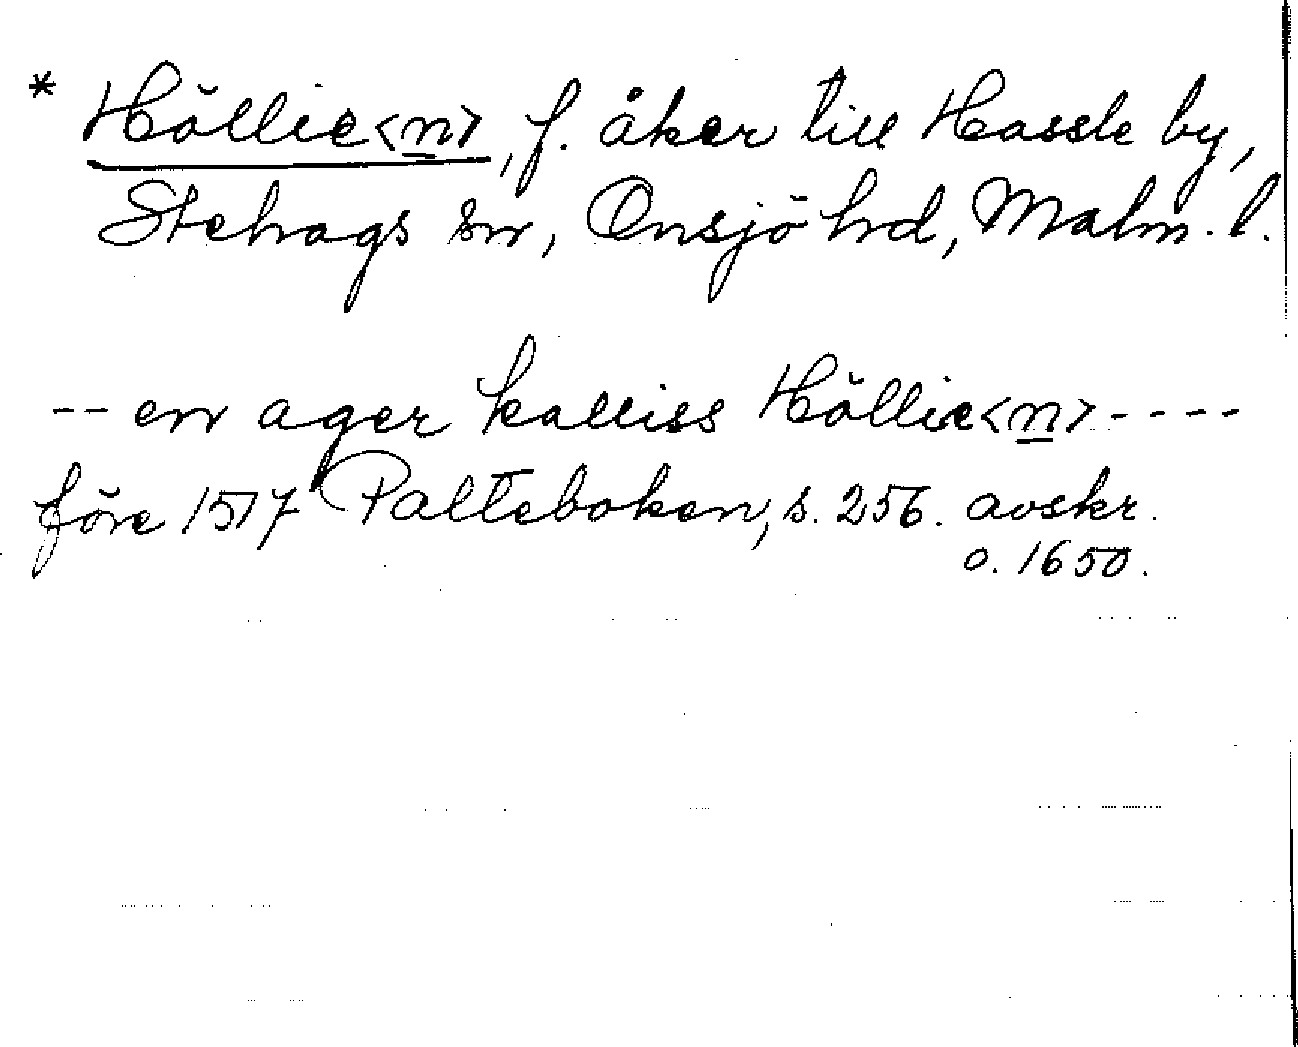 * Höllie<n>, f. åker till Hassle by,
Stehags sn, Onsjö hd, Malm. l.
-- en ager kalliss Höllie<n>----
före 1517 Palteboken, s. 256. avskr.
o. 1650.